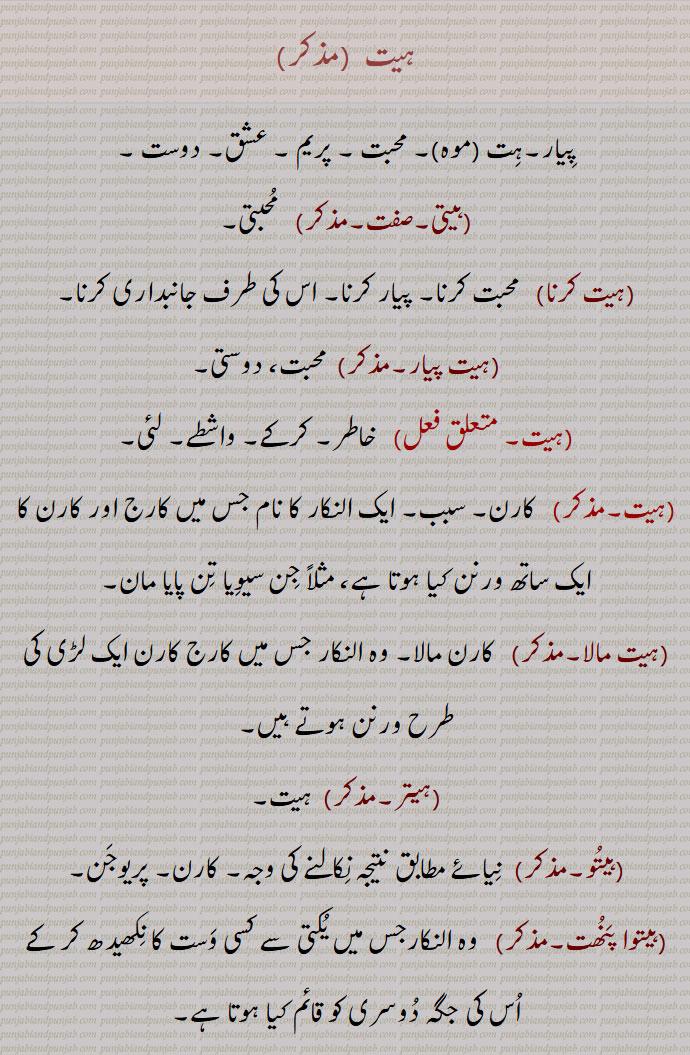 ہیت (مذکر)
پِیار۔ہِت (موہ)۔ محبت ۔ پریم ۔ عشق۔ دوست ۔
(ہیتی۔صفت۔مذکر) مُحبتی۔
(ہیت کرنا) محبت کرنا۔ پیار کرنا۔ اس کی طرف جانبداری کرنا۔
(ہیت پیار۔مذکر) محبت، دوستی۔
(ہیت۔ متعلق فعل) خاطر۔ کرکے۔ واشطے۔ لئی۔
(ہیت۔مذکر) کارن۔ سبب۔ ایک النکار کا نام جس میں کارج اور کارن کا
ایک ساتھ ورنن کیا ہوتا ہے، مثلاً جِن سیوِیا تِن پایا مان۔
(ہیت مالا۔مذکر) کارن مالا۔ وہ النکار جس میں کارج کارن ایک لڑی کی
طرح ورنن ہوتے ہیں۔
(ہیتر۔مذکر) ہیت۔
(ہیتُو۔مذکر) نِیائے مطابق نتیجہ نِکالنے کی وجہ۔ کارن۔ پریوجَن۔
(ہیتوا پَنُھت۔مذکر) وہ النکارجس میں یُکتی سے کسی وَست کا نِکھیدھ کر کے
اُس کی جگہ دُوسری کو قائم کیا ہوتا ہے۔